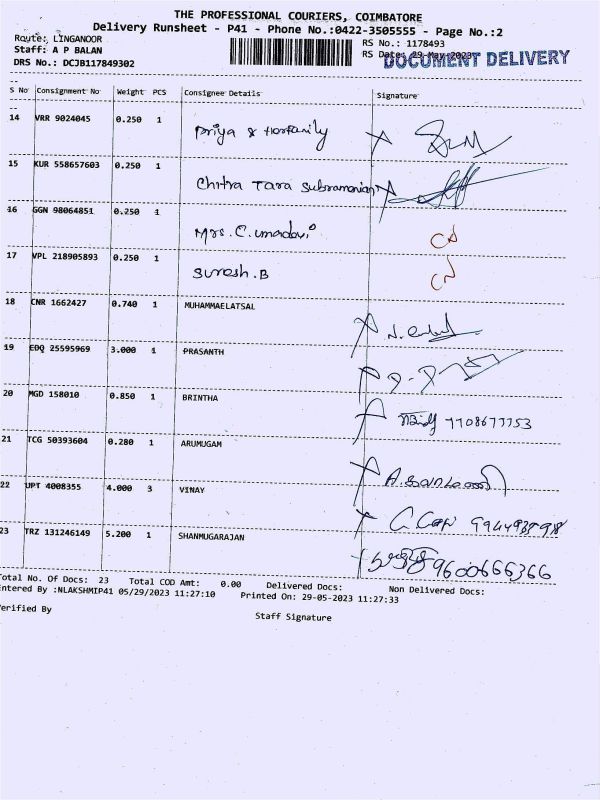 THE PROFESSIONAL COURIERS, COIMBATORE
Delivery Runsheet - P41 - Phone No.:0422-3505555 - Page No.:2
Route: LINGANOOR
RS No.: 1178493
Staff: A P BALAN
RS Date: 29-May-2023
DOCUMENT DELIVERY
DRS No.: DCJB117849302
S No Consignment No Weight PCS Consignee Details Signature
14 VRR 9024045 0.250 1 Priya &
15 KUR 558657603 0.250 1 Chitra Tara Subramanian
16 GGN 98064851 0.250 1 Mrs. C. umadevi
17 VPL 218905893 0.250 1 Suresh.B
18 CNR 1662427 0.740 1 MUHAMMAELATSAL
19 EDQ 25595969 3.000 1 PRASANTH
20 MGD 158010 0.850 1 BRINTHA 7708677753
21 TCG 50393604 0.280 1 ARUMUGAM
22 UPT 4008355 4.000 3 VINAY
23 TRZ 131246149 5.200 1 SHANMUGARAJAN 9600666366
Total No. Of Docs: 23 Total COD Amt: 0.00 Delivered Docs: Non Delivered Docs:
Entered By :NLAKSHMIP41 05/29/2023 11:27:10 Printed On: 29-05-2023 11:27:33
Verified By
Staff Signature